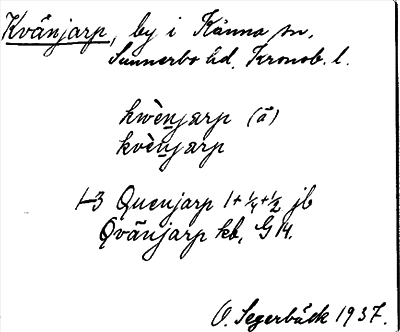 Kvänjarp, by i Kånna sn,
Sunnerbo hd, Kronob. l.
hwènjarp (å)
kvènjarp
1-3 Quenjarp 1+¼+½ jb
Qvänjarp kb, G 14.
O. Segerbäck 1937.